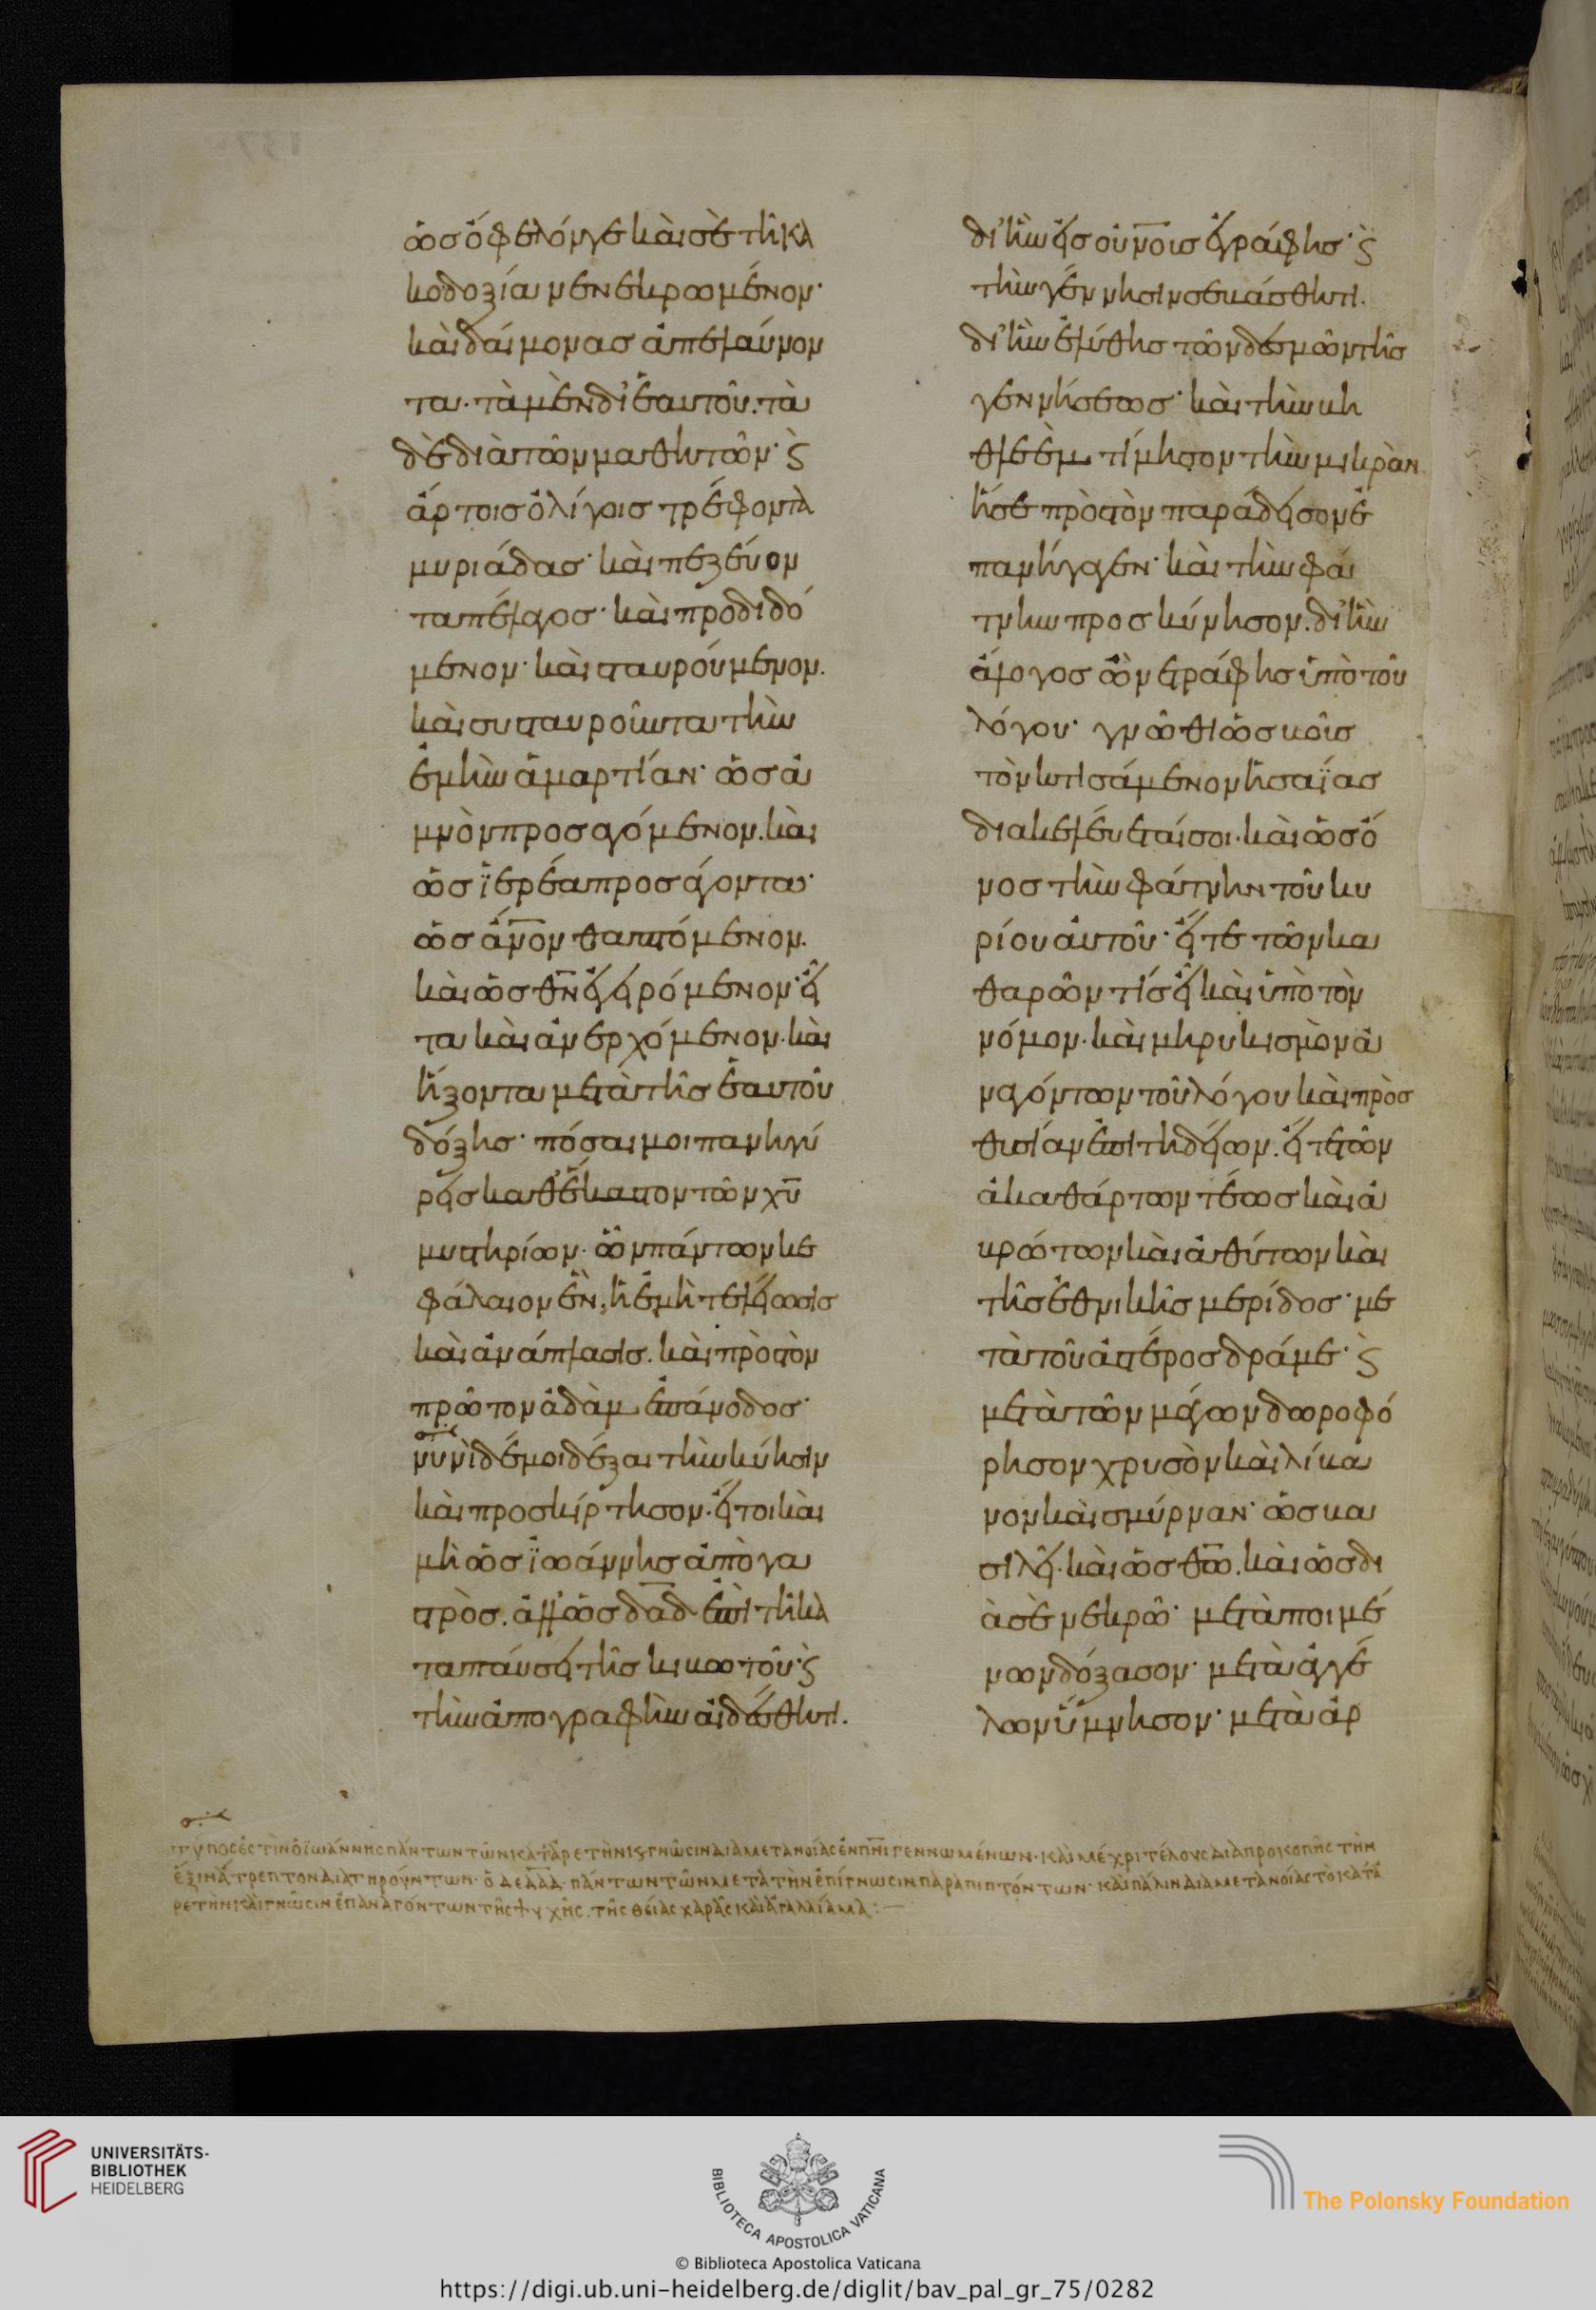 ὡσ ὄφελόν γε καὶ σὲ τῆ κα
κοδοξία νενεκρωμένον·
καὶ δαίμονασ ἀπελαύνον
τα· τὰ μὲν δι' ἑαυτοῦ. τὰ
δὲ διὰ τῶν μαθητῶν· ϗ
ἄρτοισ ὀλίγοισ τρέφοντα
μυριάδασ· καὶ πεζεύον
τα πέλαγοσ· καὶ προδιδό
μενον· καὶ σταυρούμενον.
καὶ συσταυροῦντα τὴν
ἐμὴν ἁμαρτίαν· ὡσ ἀ
μνὸν προσαγόμενον. καὶ
ὡσ ϊερέα προσάγοντα·
ὡσ ἄνον θαπτόμενον.
καὶ ὡσ θν ἐγειρόμενον· εἶ
τα καὶ ἀνερχόμενον. καὶ
ἥξοντα μετὰ τῆσ ἑαυτοῦ
δόξησ· πόσαι μοι πανηγύ
ρεισ καθ' ἕκαστον τῶν χυ
μυστηρίων· ὧν πάντων κε
φάλαιον ἕν. ἡ ἐμὴ τελείωσισ
καὶ ἀνάπλασισ. καὶ πρὸσ τὸν
πρῶτον ἀδὰμ ἐπάνοδοσ·
νυνὶ δέ μοι δέξαι τὴν κύησιν
καὶ προσκίρτησον. εἴ τοι καὶ
μὴ ὡσ ϊωάννησ ἀπὸ γα
στρόσ. ἀλλ' ὡσ δαδ ἐπὶ τῆ κα
ταπαύσει τῆσ κιβωτοῦ· ϗ
τὴν ἀπογραφὴν αἰδέσθητι.
δι' ἣν εἰσ οὐνοισ ἐγράφησ· ϗ
τὴν γέννησιν σεβάσθητι.
δι' ἣν ἐλύθησ τῶν δεσμῶν τῆσ
γεννήσεωσ· καὶ τὴν βη
θλεὲμ τίμησον τὴν μικρὰν
ἥ σε πρὸσ τὸν παράδεισον ἐ
πανήγαγεν· καὶ τὴν φά
τνην προσκύνησον. δι' ἣν
ἄλογοσ ὢν ἐτράφησ ὑπὸ τοῦ
λόγου· γνῶθι ὡσ βοῦσ
τὸν κτισάμενον ἡσαΐασ
διακελεύεταί σοι. καὶ ὡσ ὄ
νοσ τὴν φάτνην τοῦ κυ
ρίου αὐτοῦ· εἴτε τῶν κα
θαρῶν τισ εἶ καὶ ὑπὸ τὸν
νόμον. καὶ μηρυκισμὸν ἀ
ναγόντων τοῦ λόγου καὶ πρὸσ
θυσίαν ἐπιτηδείων. εἴτε τῶν
ἀκαθάρτων τέωσ καὶ ἀ
βρώτων καὶ ἀθύτων καὶ
τῆσ ἐθνικῆσ μερίδοσ· με
τὰ τοῦ ἀστέροσ δράμε· ϗ
μετὰ τῶν μάγων δωροφό
ρησον χρυσὸν καὶ λίβα
νον καὶ σμύρναν· ὡσ βα
σιλεῖ. καὶ ὡσ θω. καὶ ὡσ δι
ὰ σὲ νεκρῶ· μετὰ ποιμέ
νων δόξασον· μετὰ ἀγγέ
λων ὕμνησον· μετὰ ἀρ
τύπος ἐς τὶν ὁ ϊωάννης πάντων τῶν κατ' ἀρετὴν ϗ γνῶσιν διὰ μετανοίας ἐν πνι γεννωμένων· καὶ μέχρι τέλους διὰ προκοπῆς τὴν
ἕξιν ἄτρεπτον διατηρούντων· ὁ δὲ δαδ πάντων τῶν μετὰ τὴν ἐπίγνωσιν παραπιπτόντων· καὶ πάλιν διὰ μετανοίας τὸ κατ' ἀ
ρετὴν καὶ γνῶσιν ἐπαναγόντων τῆς ψυχῆς. τῆς θείας χαρᾶς καὶ ἀγαλλίαμα:—
UNIVERSITÄTS-
BIBLIOTHEK
HEIDELBERG
BIBLIOTECA APOSTOLICA VATICANA
The Polonsky Foundation
© Biblioteca Apostolica Vaticana
https://digi.ub.uni-heidelberg.de/diglit/bav_pal_gr_75/0282